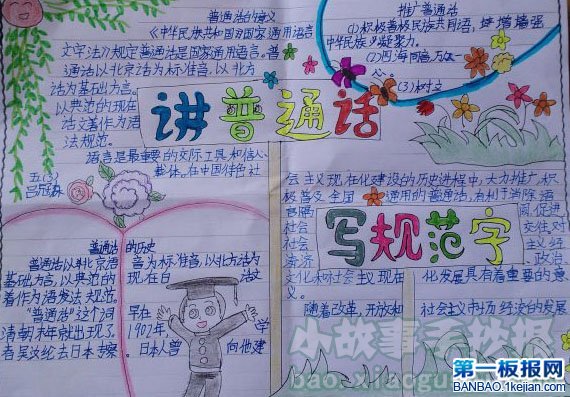 普通话的意义
《中华人民共和国国家通用语言
文字法》规定普通话是国家通用语言。普
通话以北京话为标准音,以北方
话为基础方言。
以典范的现在
话文著作为语
法规范。
语言是最重要的交际工具和信心
载体。在中国特色社
五(3)
推广普通法
(1)积极普及民族共同语,
中华民族凝聚力。
(2)四海同音,万众一
心。
(3)树文
讲普通话
会主义现,在化建设的历史进程中,大力推广,积
极普及全国通用的普通法,有利于消除语
言隔
社会
社会
济济
阂,促进
交往,对
主义经
,政治
文化和社会主义现在化发展具有着重要的意
义。
随着改革,开放和社会主义市场经济的发展
写规范字
普通法的历史
普通法以北京语言为标准音,以北方法为
基础方言,以典范的现在白话文
著作为语发法规范。
"普通法"这个词早在
清朝末年就出现了1902年,学
者吴汝纶去日本考察。日本人曾向他建
小故事手抄报
bao.xiaogu
第一板报网
BANBAO.1kejian.com